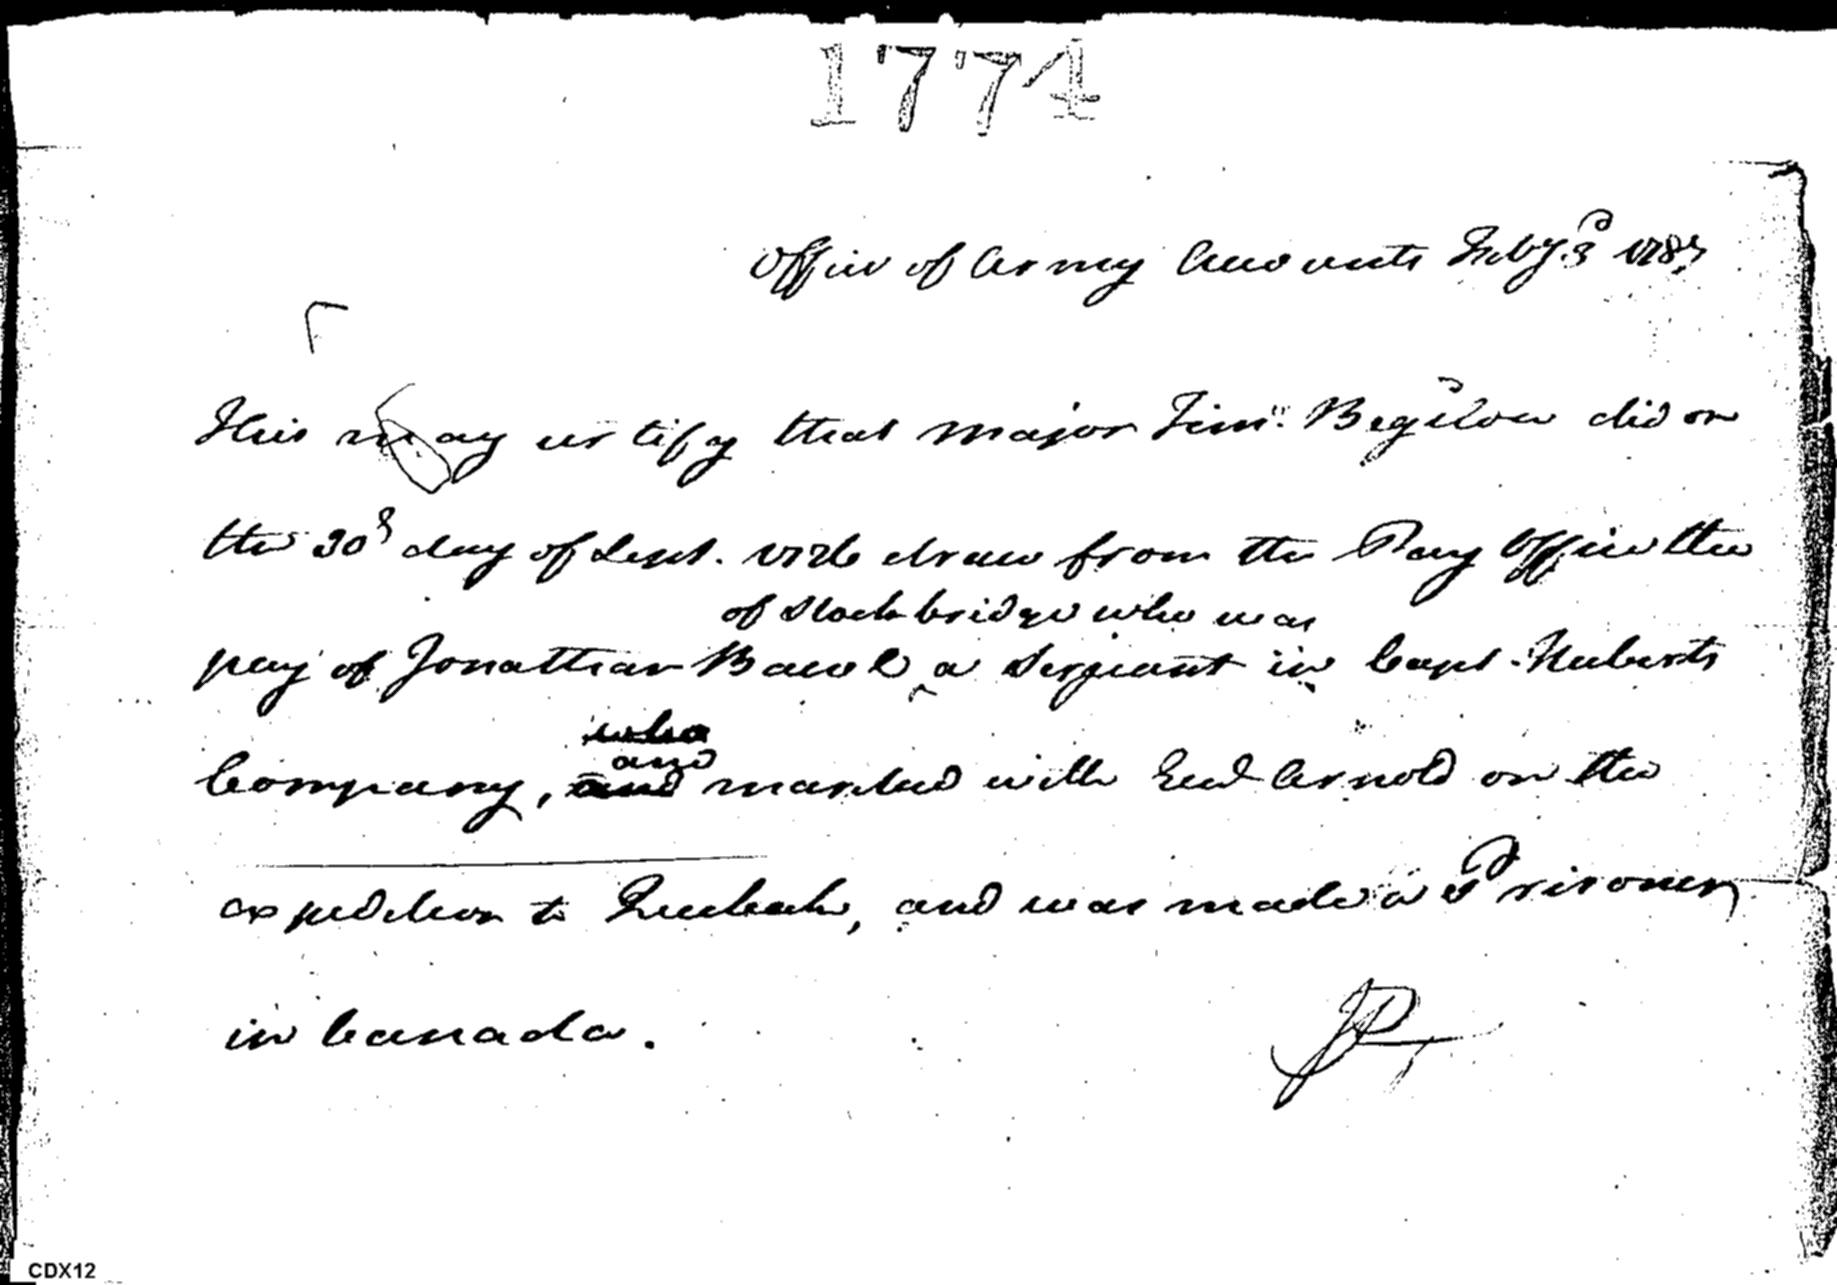 1774
Office of Army Accounts Feby. 3d 178
This may certify that major Timy. Begilow did on
the 30th day of Sept. 1776 draw from the Pay Office the
of Stockbridge who was
pay of Jonathan Ball ^ a Sergeant in Capt. Huberts
who
and
Company, and marched with Genl Arnold on the
expedition to Quebeck, and was made a Prisoner
in Canada.
CDX12